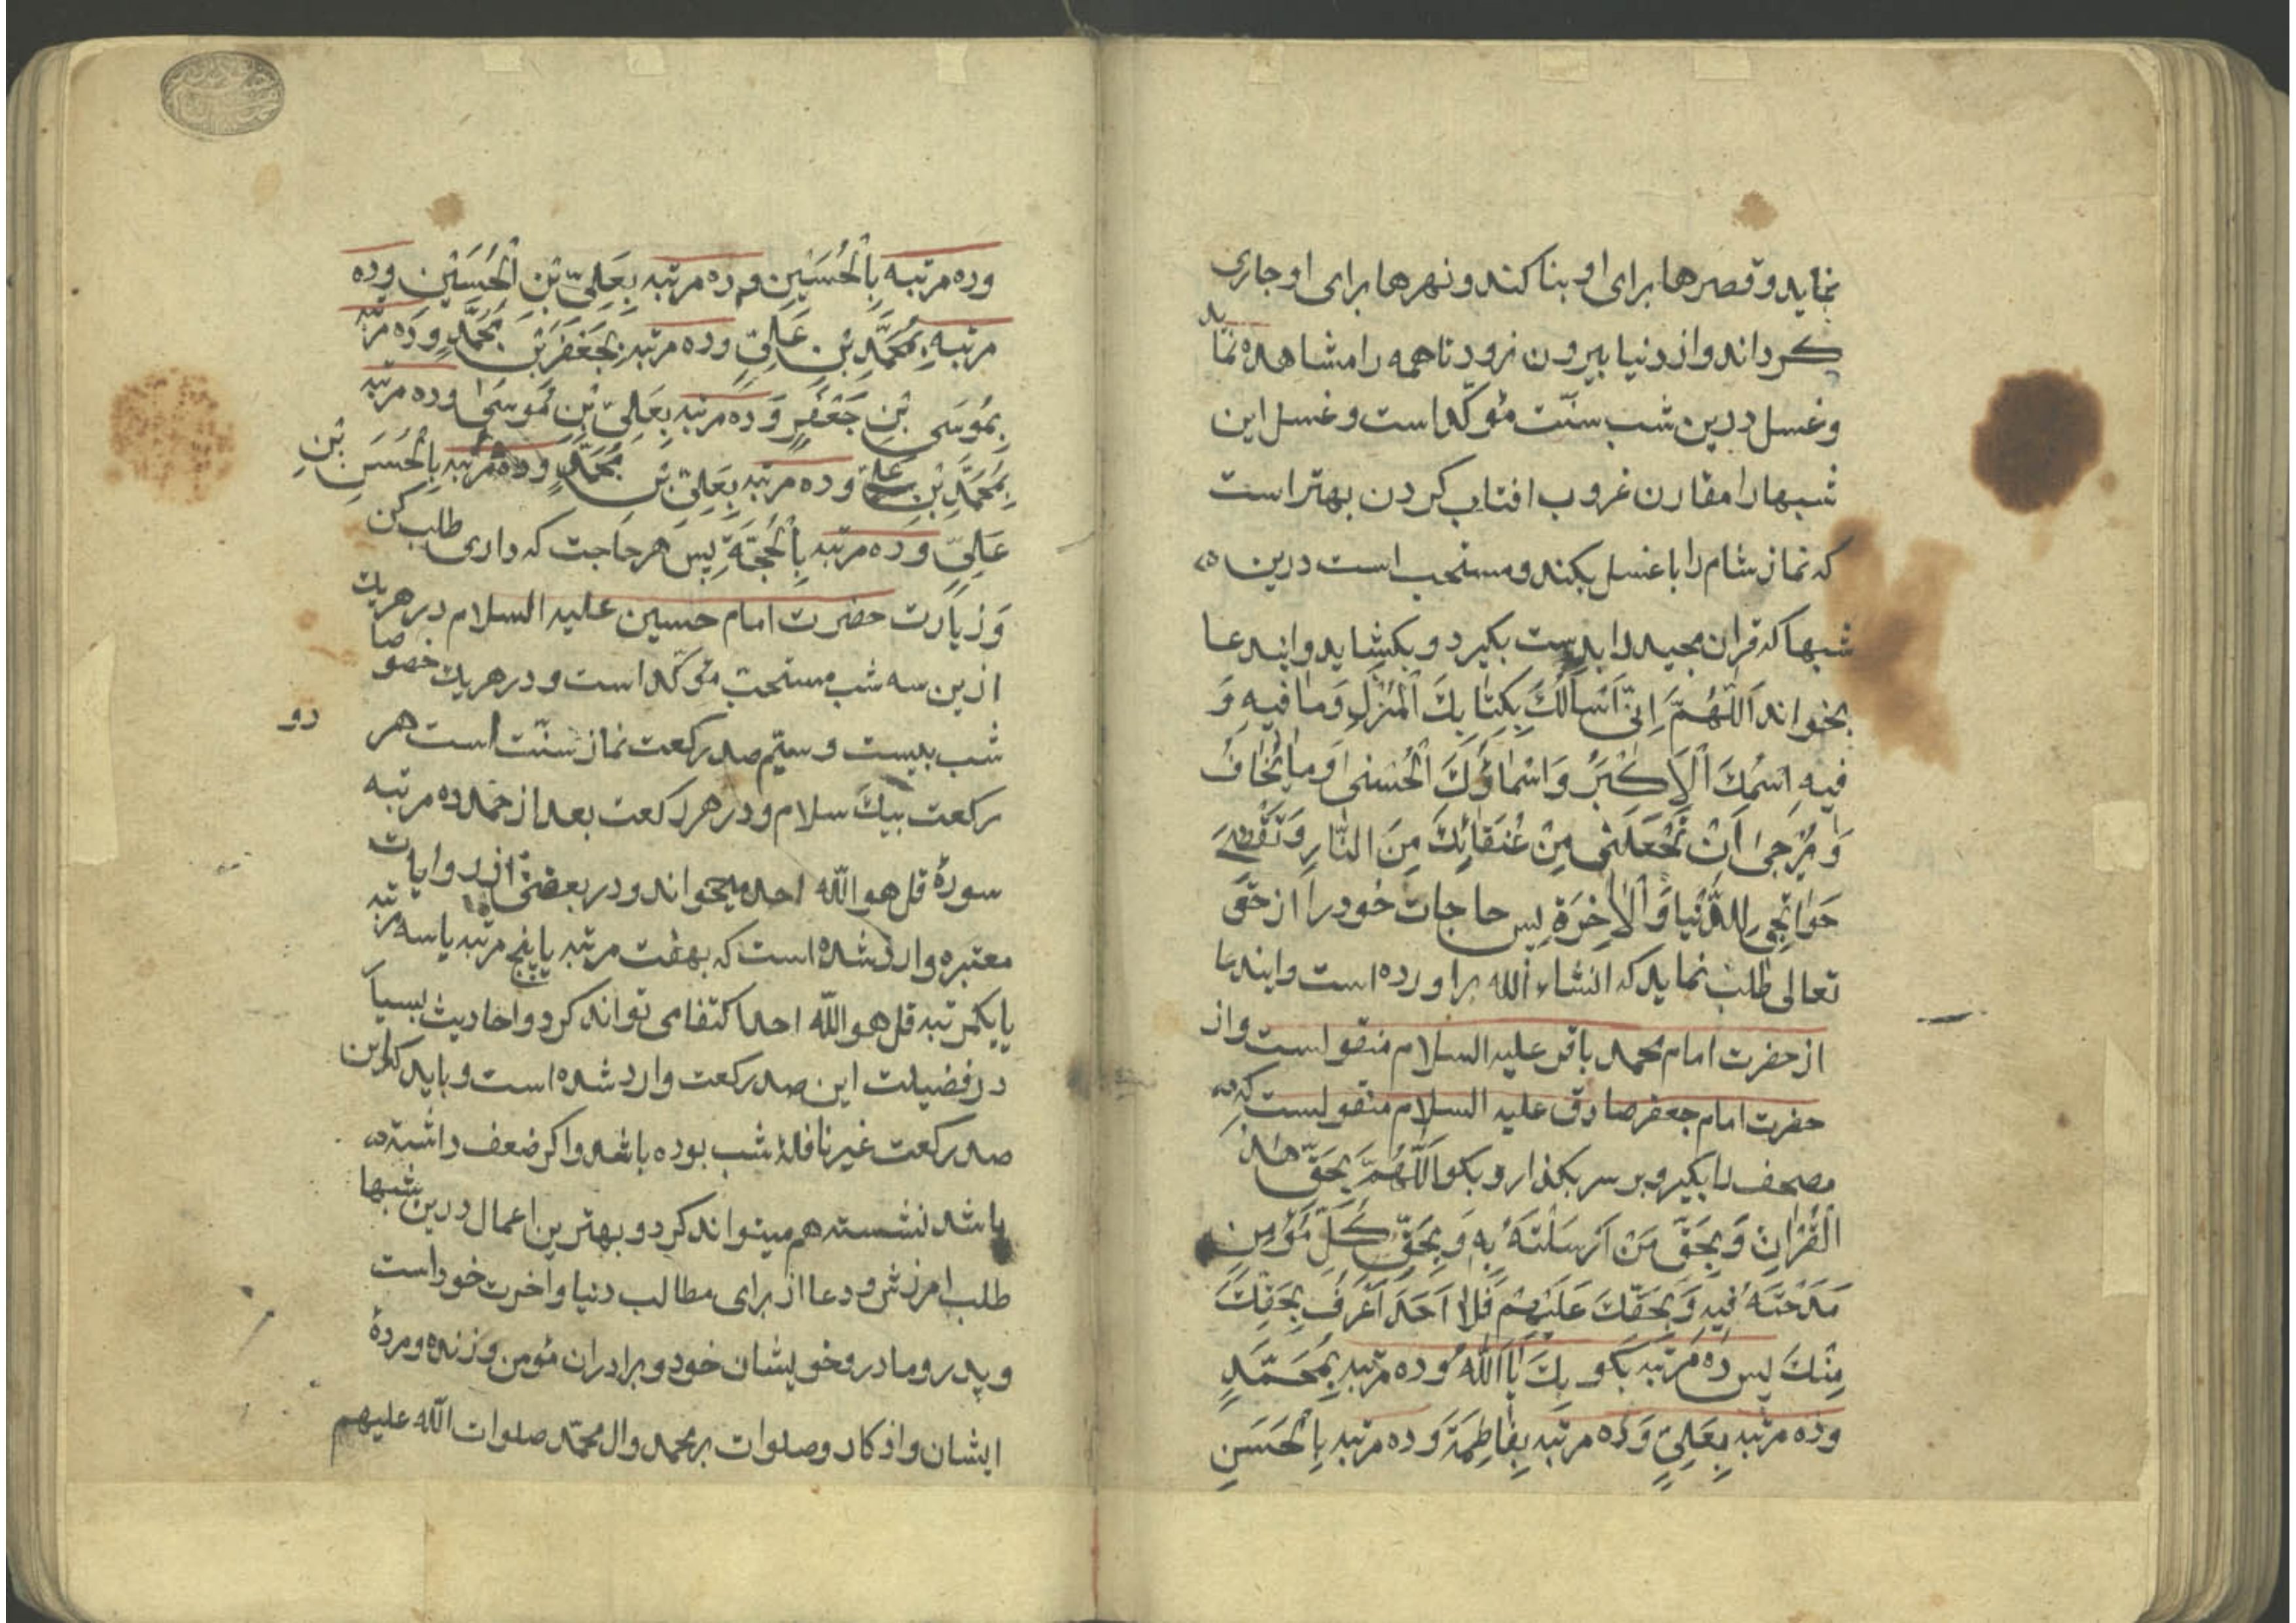 نماید و قصرها برای او بنا کند و نهرها برای او جاری
کرداند و از دنیا بیرون نرود تا همه را مشاهده نماید
و غسل درین شب سنّت مؤکّد است و غسل این
شبها را مقارن غروب افتاب کردن بهتر است
که نماز شام را با غسل بکند و مستحب است درین
شبها که قران مجید را بدست بکیرد و بکشاید و ایندعا
بخواند اَللّٰهُمَّ اِنّی اَسْاَلُكَ بِکِتٰابِكَ الْمُنْزَلِ وَمٰا فیهِ وَ
فیهِ اسْمُكَ الْاَکْبَرُ وَاَسْمٰاؤُكَ الْحُسْنیٰ وَمٰا یُخٰافُ
وَ یُرْجیٰ اَنْ تَجْعَلَنی مِنْ عُتَقٰائِكَ مِنَ النّٰارِ وَتَقْضِیَ
حَوٰائِجی لِلدُّنْیٰا وَالْاٰخِرَةِ پس حاجات خود را از حق
تعالی طلب نماید که انشاء الله براورده است و ایندعا
از حضرت امام محمد باقر علیه السلام منقولست و از
حضرت امام جعفر صادق علیه السلام منقولست که
مصحف را بکیر و بر سر بکذار و بکو اَللّٰهُمَّ بِحَقِّ هٰذَا
الْقُرْاٰنِ وَ بِحَقِّ مَنْ اَرْسَلْتَهُ بِهِ وَ بِحَقِّ کُلِّ مُؤْمِنٍ
مَدَحْتَهُ فیهِ وَ بِحَقِّكَ عَلَیْهِمْ فَلٰا اَحَدَ اَعْرَفُ بِحَقِّكَ
مِنْكَ پس ده مرتبه بکو بِكَ یٰا اَللّٰهُ و ده مرتبه بِمُحَمَّدٍ
و ده مرتبه بِعَلِیٍّ وَ ده مرتبه بِفٰاطِمَةَ وَ ده مرتبه بِالْحَسَنِ
و ده مرتبه بِالْحُسَیْنِ و ده مرتبه بِعَلِیِّ بْنِ الْحُسَیْنِ و ده
مرتبه بِمُحَمَّدِ بْنِ عَلِیٍّ و ده مرتبه بِجَعْفَرِ بْنِ مُحَمَّدٍ و ده مرتبه
بِمُوسَی بْنِ جَعْفَرٍ وَ ده مرتبه بِعَلِیِّ بْنِ مُوسیٰ و ده مرتبه
بِمُحَمَّدِ بْنِ عَلِیٍّ و ده مرتبه بِعَلِیِّ بْنِ مُحَمَّدٍ و ده مرتبه بِالْحَسَنِ بْنِ
عَلِیٍّ وَ ده مرتبه بِالْحُجَّةِ پس هر حاجت که داری طلب کن
وَ زیارت حضرت امام حسین علیه السلام در هریك
ازین سه شب مستحبّ مؤکّد است و در هریك خصوصا
شب بیست و سیّم صد رکعت نماز سنّت است هر دو
رکعت بیك سلام و در هر رکعت بعد از حمد ده مرتبه
سورهٔ قل هو اللّه احد میخواند و در بعضی از روایات
معتبره وارد شده است که بهفت مرتبه یا پنج مرتبه یا سه مرتبه
یا یکمرتبه قل هو اللّه احد اکتفا می تواند کرد و احادیث بسیار
در فضیلت این صد رکعت وارد شده است و باید که این
صد رکعت غیر نافلهٔ شب بوده باشد و اکر ضعف داشته
باشد نشسته هم میتواند کرد و بهترین اعمال درین شبها
طلب امرزش و دعا از برای مطالب دنیا و اخرت خود است
و پدر و مادر و خویشان خود و برادران مؤمن و زنده و مردهٔ
ایشان و اذکار و صلوات بر محمد و ال محمّد صلوات اللّه علیهم